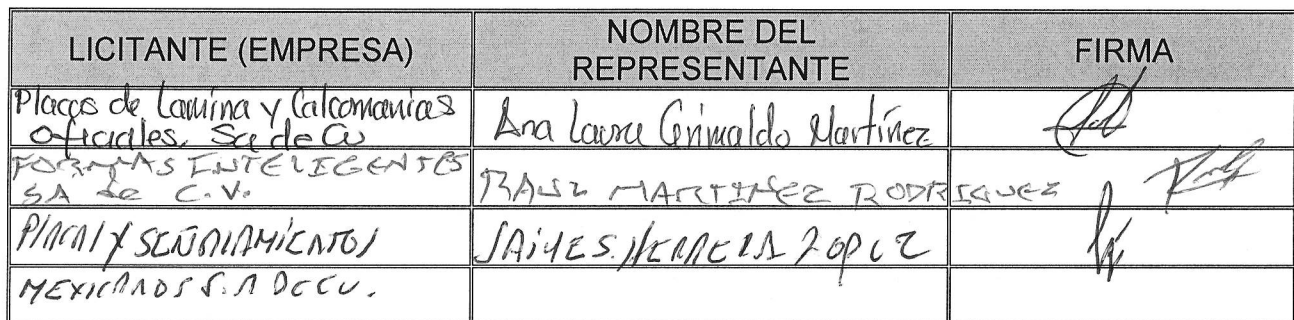 LICITANTE (EMPRESA) NOMBRE DEL REPRESENTANTE FIRMA
Placas de Lamina y Calcomanias Oficiales, Sa de Cv Ana Laura Grimaldo Martínez
FORMAS INTELIGENTES SA de C.V. RAUL MARTINEZ RODRIGUEZ
PLACAS Y SEÑALAMIENTOS JAIME S. HERRERA LOPEZ
MEXICANOS S.A DE CV.